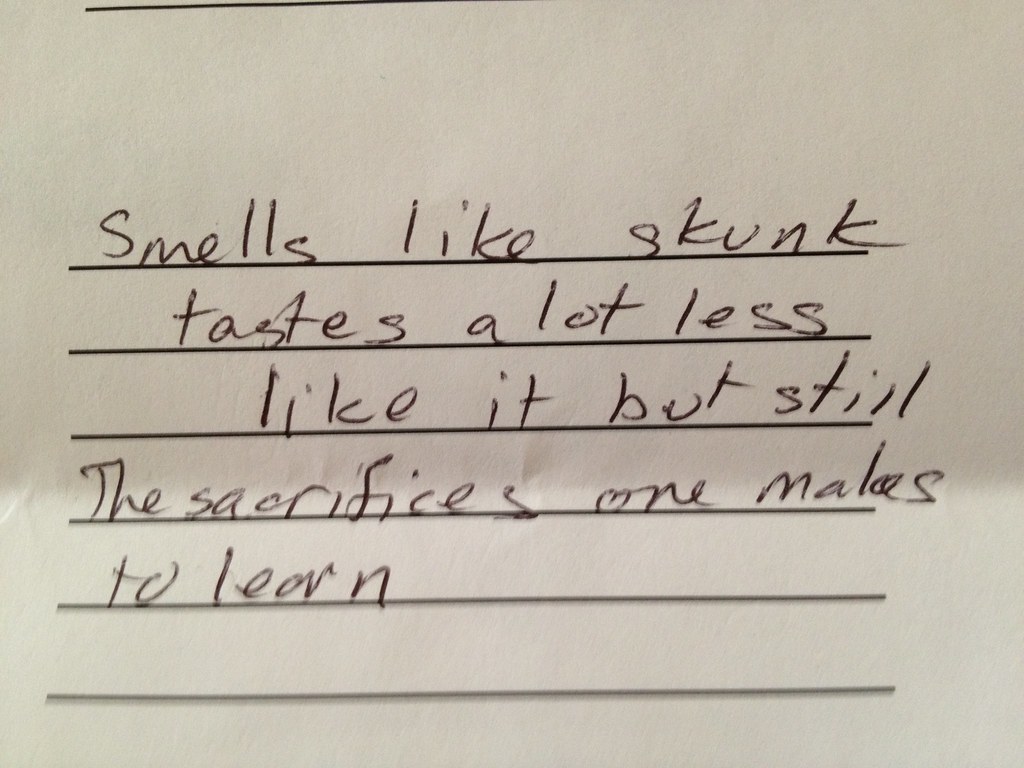 Smells like skunk
tastes a lot less
like it but still
The sacrifices one makes
to learn